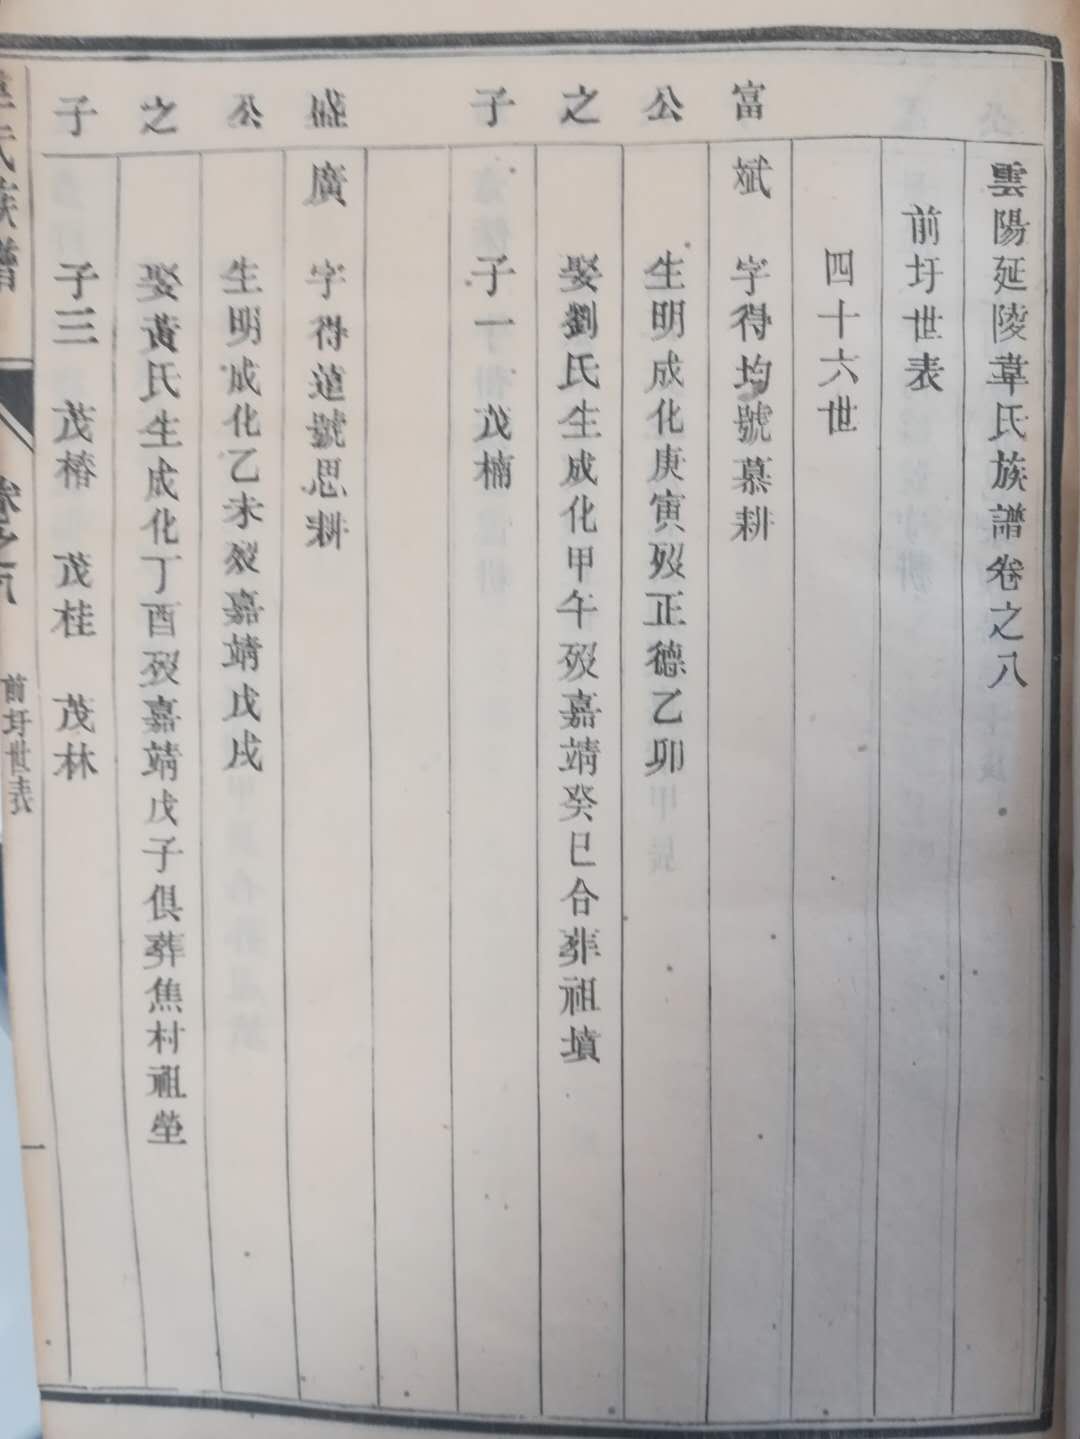 雲陽延陵韋氏族譜卷之八
前圩世表
四十六世
富 斌 字得均號慕耕
公 生明成化庚寅歿正德乙卯
之 娶劉氏生成化甲午歿嘉靖癸巳合葬祖墳
子 子一 茂楠
盛 廣 字得道號思耕
公 生明成化乙未歿嘉靖戊戌
之 娶黃氏生成化丁酉歿嘉靖戊子俱葬焦村祖塋
子 子三 茂椿 茂桂 茂林
韋氏族譜 卷之八 前圩世表 一